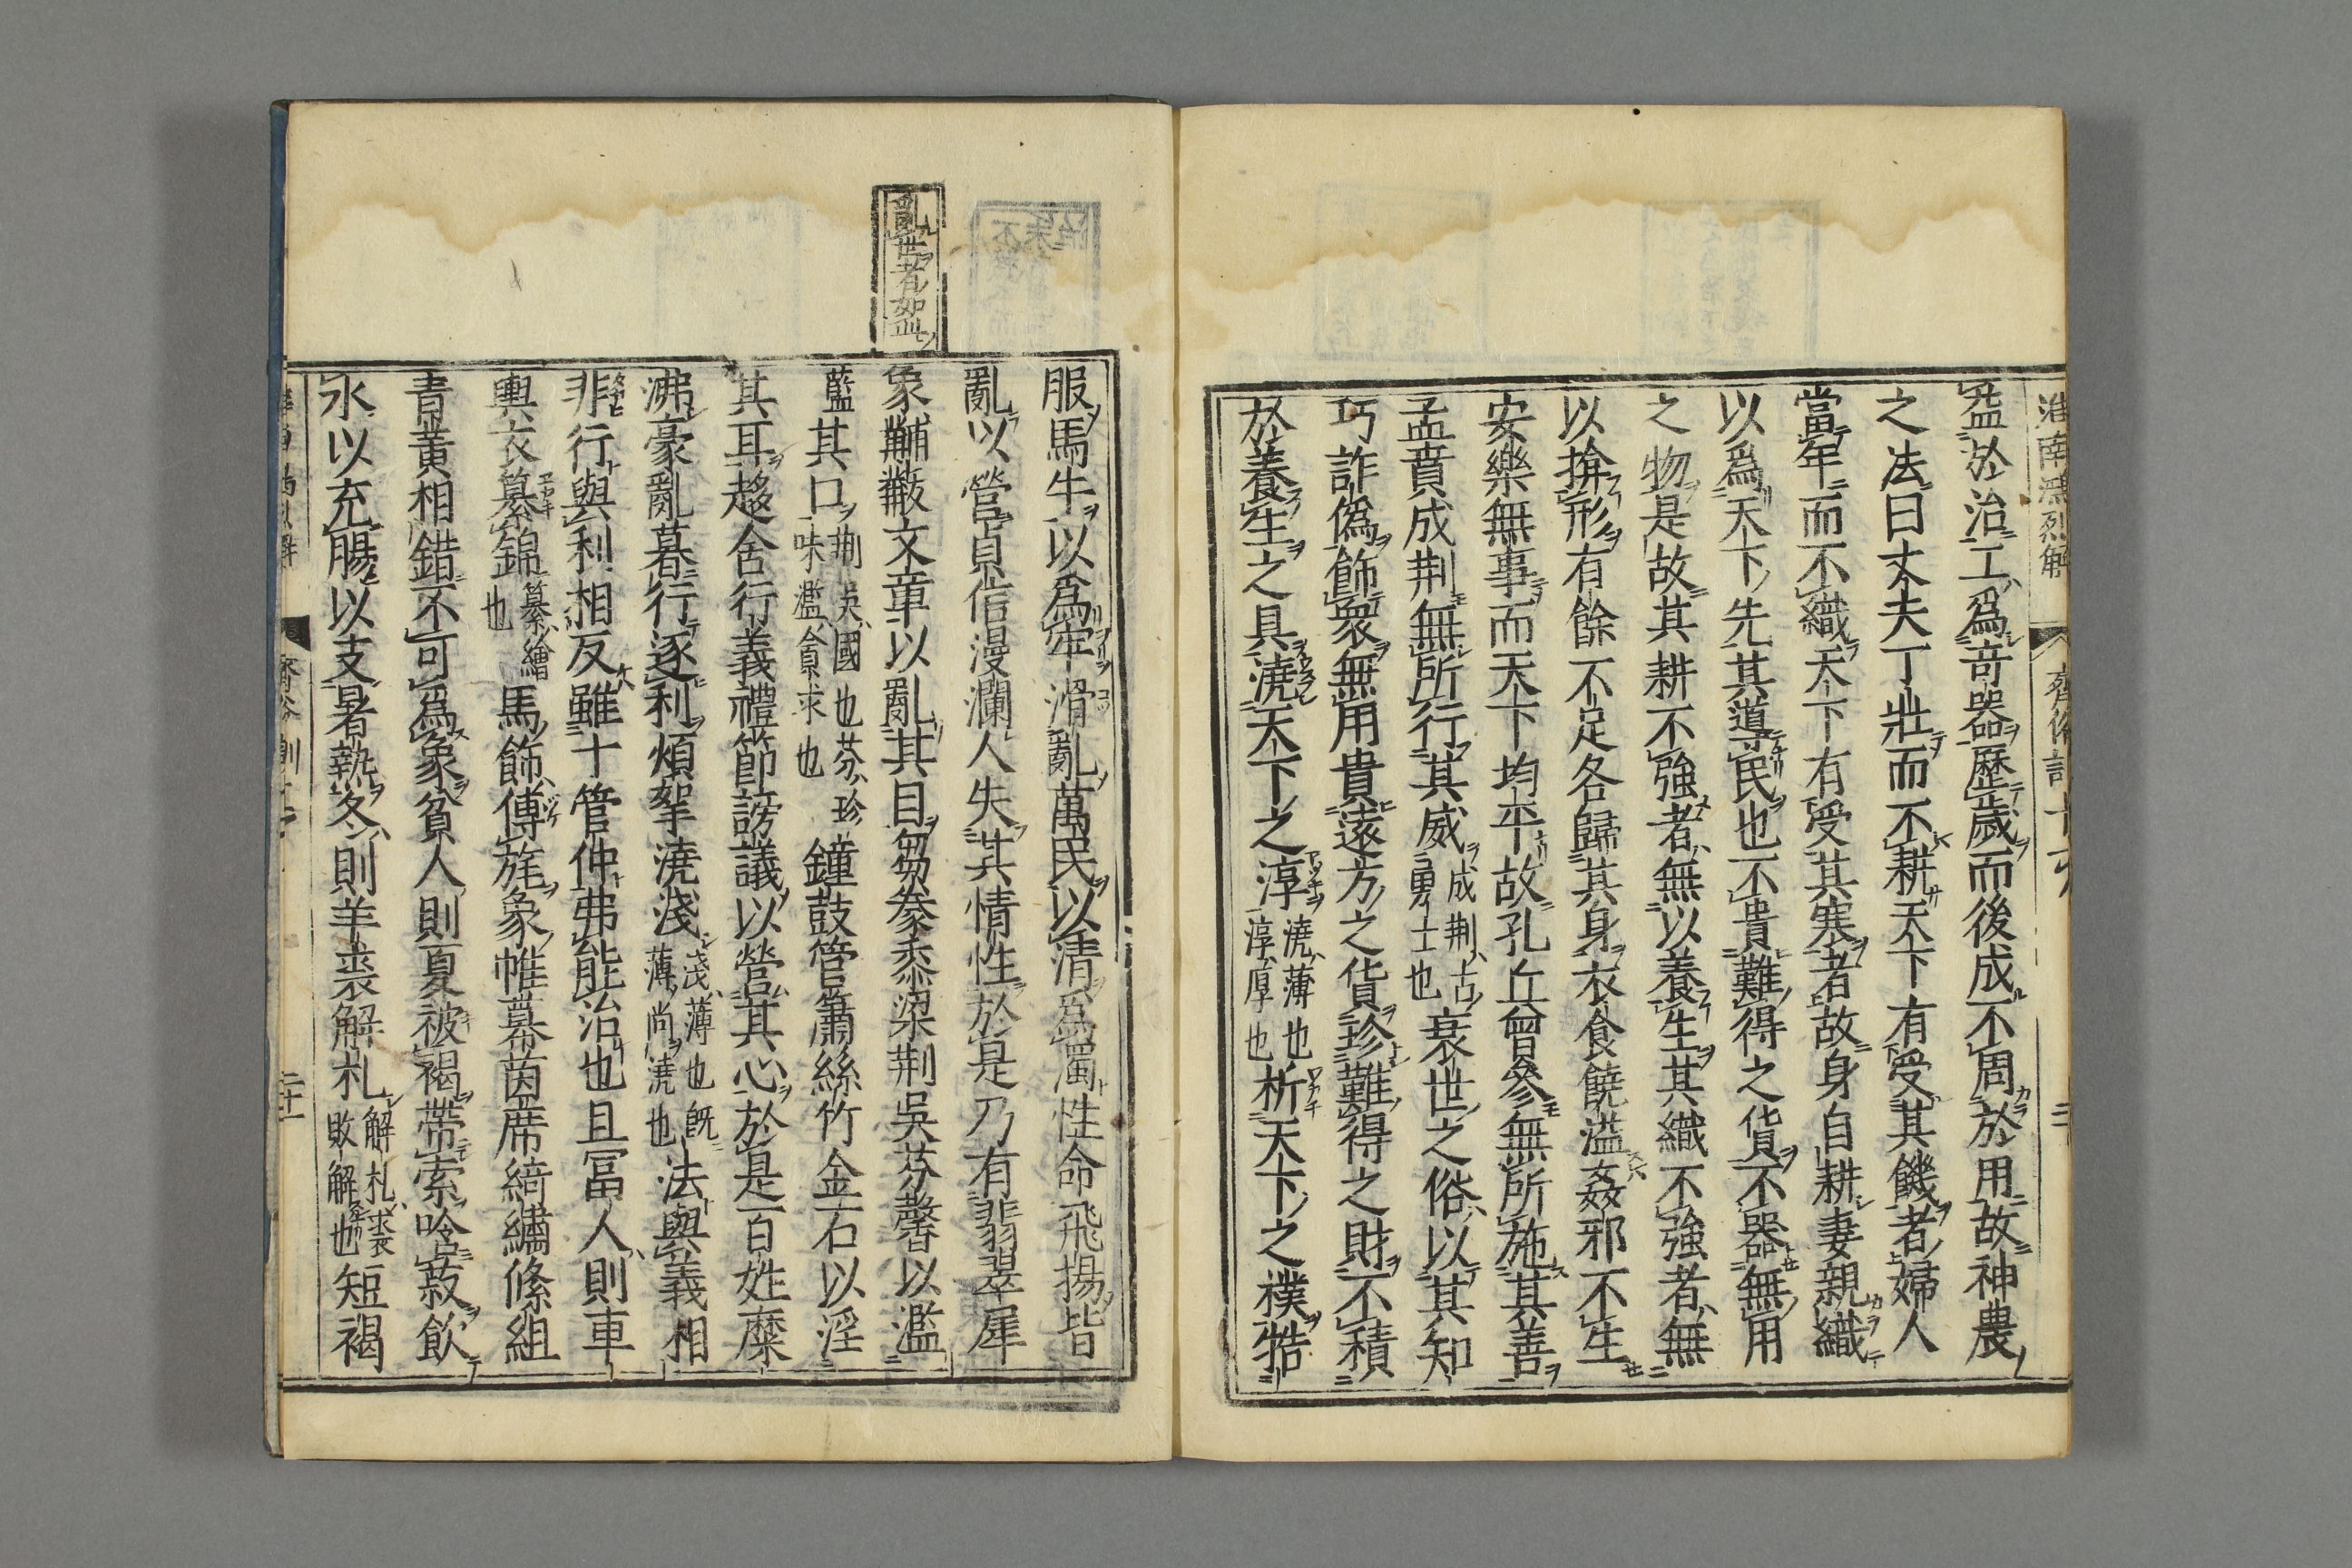 淮南鴻烈解
齊俗訓十一
巫於治工爲竒器歷歲而後成不周於用故神農
之法曰丈夫丁壯而不耕天下有受其饑者婦人
當年而不織天下有受其寒者故身自耕妻親織
以爲天下先其導民也不貴難得之貨不器無用
之物是故其耕不強者無以養生其織不強者無
以揜形有餘不足各歸其身衣食饒溢姦邪不生
安樂無事而天下均平故孔丘曾參無所施其善
孟賁成荆無所行其威成荆古勇士也衰世之俗以其知
巧詐偽飾衆無用貴遠方之貨珍難得之財不積
於養生之具澆天下之淳澆薄也淳厚也析天下之樸牿
亂世者如此
服馬牛以爲牢滑亂萬民以清爲濁性命飛揚皆
亂以營貞信漫瀾人失其情性於是乃有翡翠犀
象黼黻文章以亂其目芻豢黍粱荆吳芬馨以濫
藍其口荆吳國也芬珍味濫貪求也鐘鼓管簫絲竹金石以淫
其耳趍舍行義禮節謗議以營其心於是百姓糜
沸豪亂暮行逐利煩挐澆淺淺薄也旣薄尚澆也法與義相
非行與利相反雖十管仲弗能治也且冨人則車
輿衣纂錦纂繪也馬飾傅旄象帷幕茵席綺繡絛組
青黃相錯不可爲象貧人則夏被褐帶索唅菽飲
水以充腸以支暑熱冬則羊裘解札解札裘敗解也短褐
齊俗訓
二十一